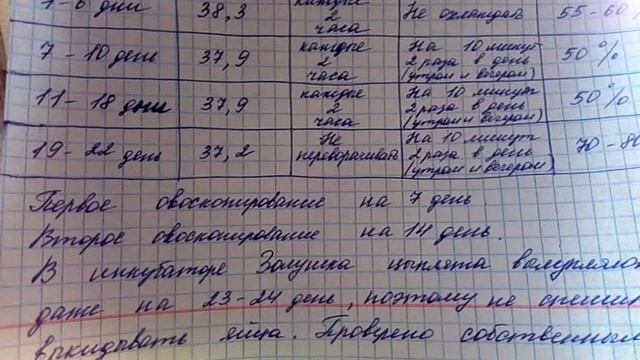 1-6 дни 38,3 каждые 2 часа Не охлаждать 55-60
7-10 день 37,9 каждые 2 часа На 10 минут 2 раза в день (утром и вечером) 50%
11-18 дни 37,9 каждые 2 часа На 10 минут 2 раза в день (утром и вечером) 50%
19-22 день 37,2 Не переворачивать На 10 минут 2 раза в день (утром и вечером) 70-80
Первое овоскопирование на 7 день.
Второе овоскопирование на 14 день.
В инкубаторе Золушка цыплята
даже на 23-24 день, поэтому не
выкидывать яйца. Проверено